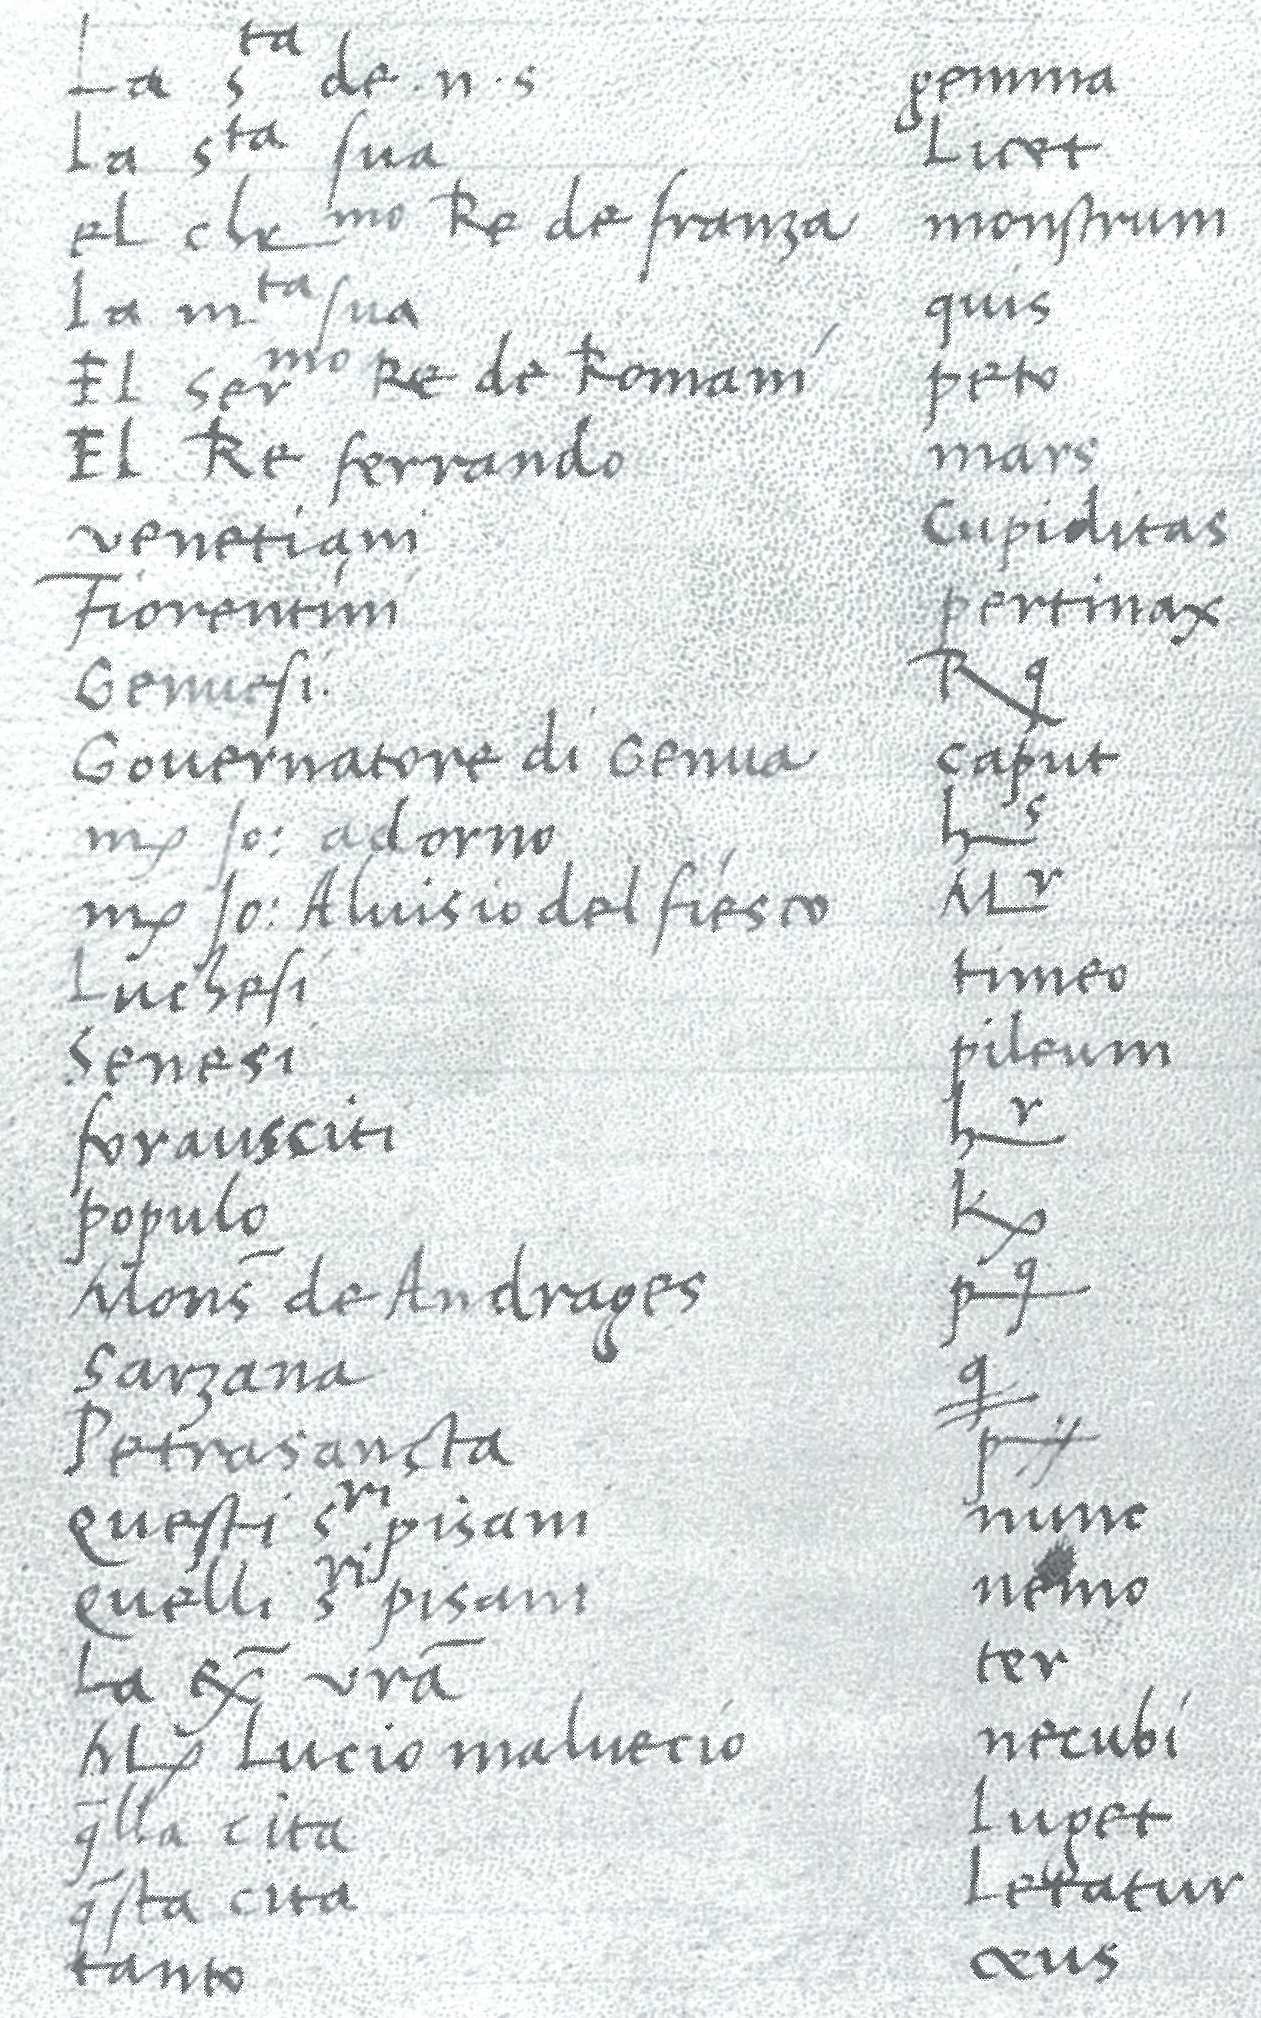 La s^ta de .n.s gemma
La s^ta sua Licet
el che^mo Re de franza monstrum
La m^ta sua quis
El ser^mo Re de Romani peto
El Re ferrando mars
venetiani Cupiditas
Fiorentini pertinax
Genuesi. R^q
Gouernatore di Genua caput
mꝭ Jo: adorno h^s
mꝭ Jo: Aluisio del fiesco M^r
Luchesi timeo
Senesi pileum
forausciti h^r
populo
Mons̃ de Andrages p^q
Sarzana q
Petrasancta
questi s^ri pisani nunc
quelli s^ri pisani nemo
La ex̃ vrã ter
Mꝭ Lucio maluecio necubi
q̃lla cita Luget
q̃sta cita Letatur
tanto ceus